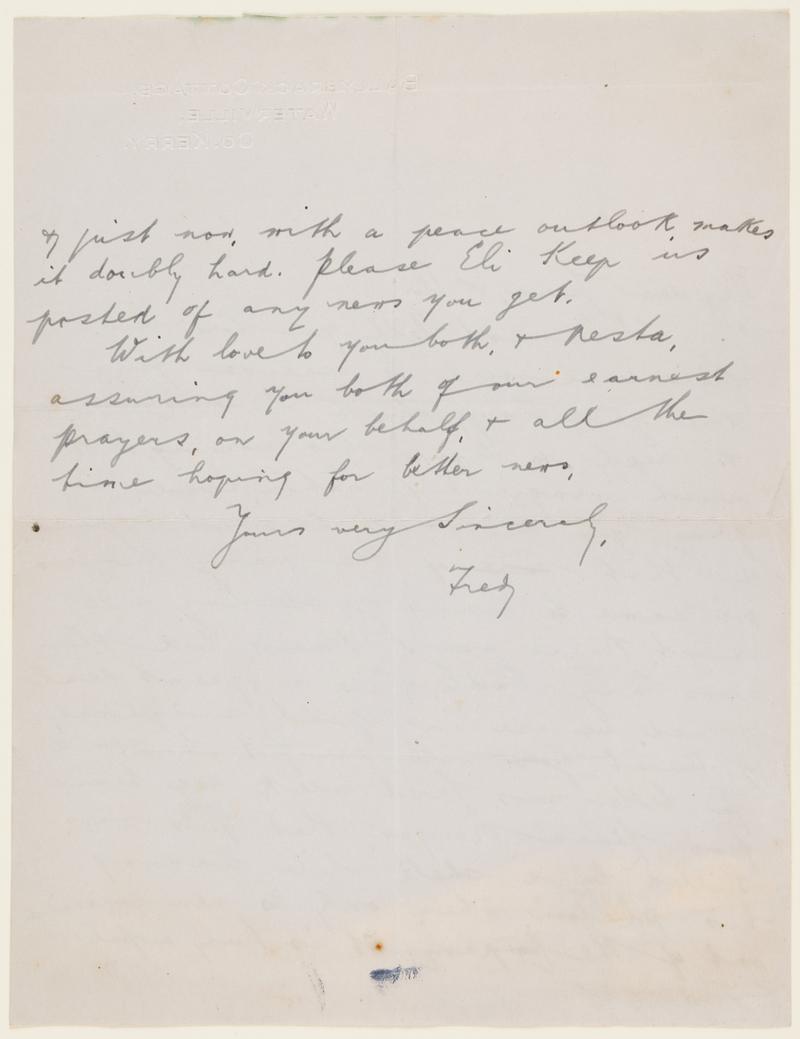 BALLYBRACK COTTAGE,
WATERVILLE,
CO. KERRY.
& just now, with a peace outlook, makes
it doubly hard. Please Eli Keep us
posted of any news you get.
With love to you both, & Nesta,
assuring you both of our earnest
prayers, on your behalf, & all the
time hoping for better news,
Yours very Sincerely,
Fred